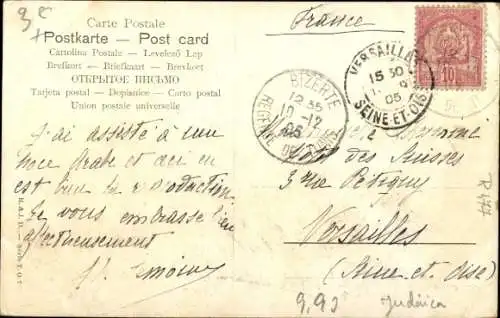 3 e
France
Carte Postale
Postkarte — Post card
Cartolina Postale — Levelező Lap
Brefkort — Briefkaart — Brevkort
ОТКРЫТОЕ ПИСЬМО
Tarjeta postal — Dopisnice — Carto postal
Union postale universelle
VERSAILLES
15 30
05
SEINE-ET-OISE
10
BIZERTE
12 35
10 -12
05
REGENCE DE TUNIS
J'ai assisté à une
noce Arabe et ceci en
est bien la reproduction
Je vous embrasse bien
affectueusement
des Suisses
3 rue Pétigny
Versailles
(Seine et Oise)
R 174
9,90